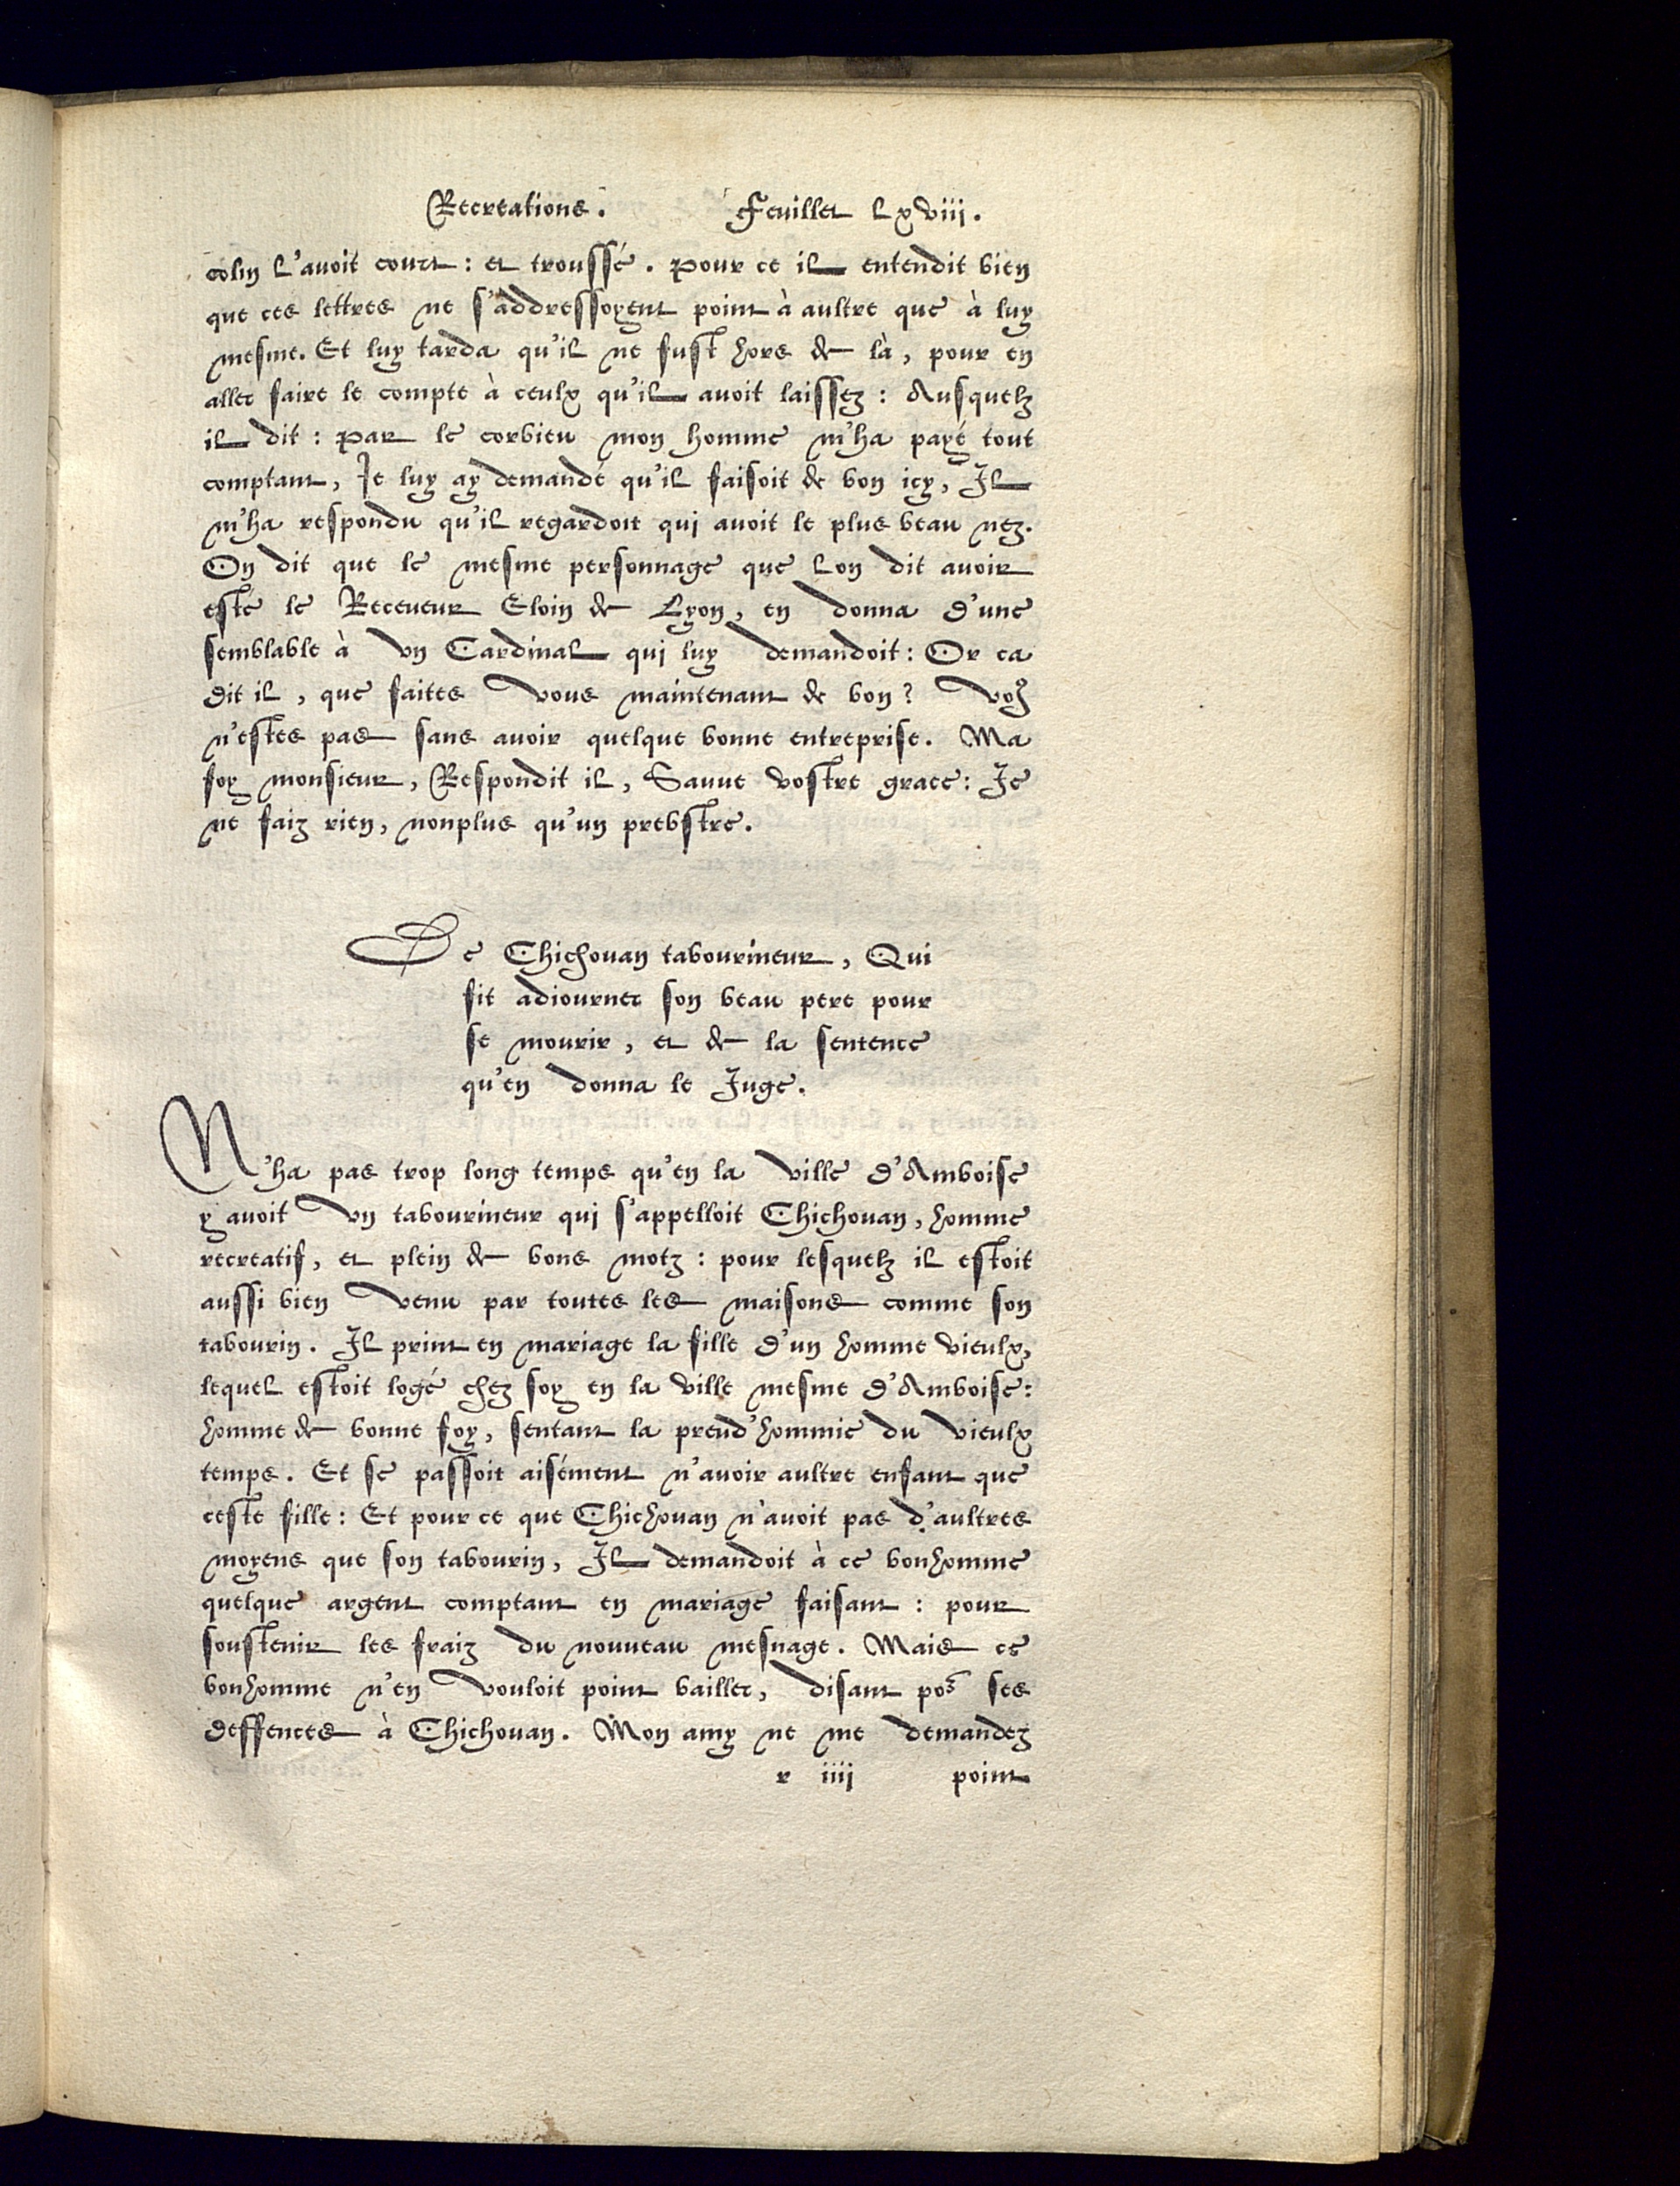 Recreations. Feuillet Lxviii.
colin l'avoit court: et troussé. Pour ce il entendit bien
que ces lettres ne s'addressoyent point à aultre que à luy
mesme. Et luy tarda qu'il ne fust hors de là, pour en
aller faire le compte à ceulx qu'il avoit laissez: Ausquelz
il dit: Par le corbieu mon homme m'ha payé tout
comptant, Je luy ay demandé qu'il faisoit de bon icy, Il
m'ha respondu qu'il regardoit qui avoit le plus beau nez.
On dit que le mesme personnage que Lon dit avoir
esté le Receveur Eloin de Lyon, en donna d'une
semblable à vn Cardinal qui luy demandoit: Or ca
dit il, que faites vous maintenant de bon? voꝰ
n'estes pas sans avoir quelque bonne entreprise. Ma
foy monsieur, Respondit il, Sauve vostre grace: Je
ne faiz rien, nonplus qu'un prebstre.
De Chichouan tabourineur, Qui
fit adiourner son beau pere pour
se mourir, et de la sentence
qu'en donna le Juge.
N'ha pas trop long temps qu'en la ville d'Amboise
y avoit vn tabourineur qui s'appelloit Chichouan, homme
recreatif, et plein de bons motz: pour lesquelz il estoit
aussi bien venu par toutes les maisons comme son
tabourin. Il print en mariage la fille d'un homme vieulx,
lequel estoit logé chez soy en la ville mesme d'Amboise:
homme de bonne foy, sentant la preud'hommie du vieulx
temps. Et se passoit aisément n'avoir aultre enfant que
ceste fille: Et pour ce que Chichouan n'avoit pas d'aultres
moyens que son tabourin, Il demandoit à ce bonhomme
quelque argent comptant en mariage faisant: pour
soustenir les fraiz du nouveau mesnage. Mais ce
bonhomme n'en vouloit point bailler, disant poᵘʳ ses
deffences à Chichouan. Mon amy ne me demandez
r iiij point